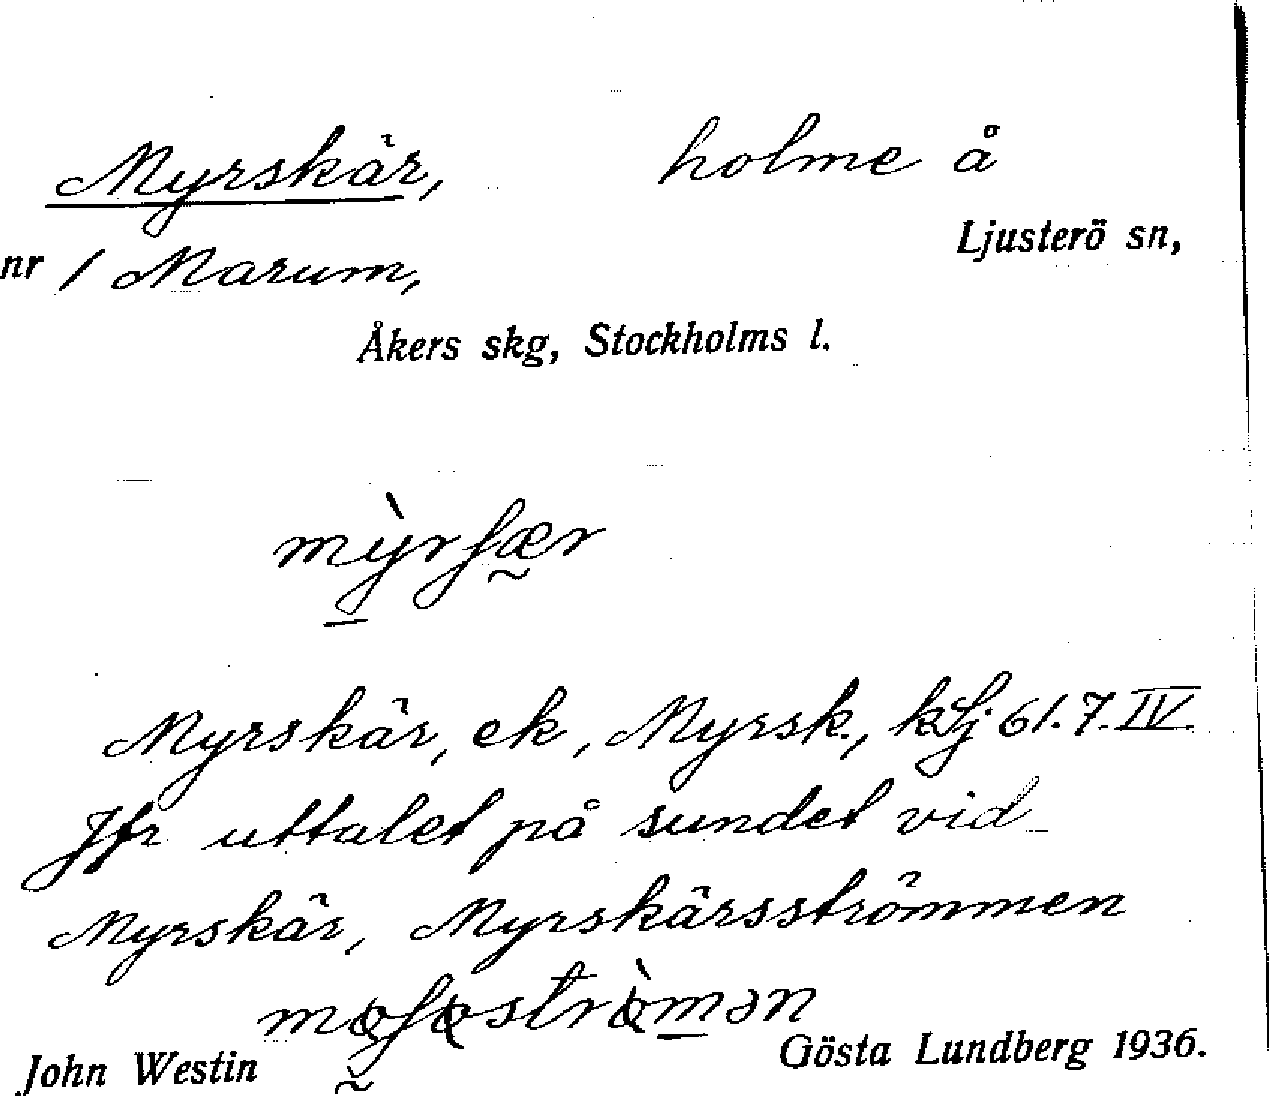 Myrskär, holme å
Ljusterö sn,
nr 1 Marum,
Åkers skg, Stockholms l.
mỳrʃær
Myrskär, ek, Myrsk., kLj 61.7.IV.
Jfr uttalet på sundet vid
Myrskär, Myrskärsströmmen
John Westin Gösta Lundberg 1936.